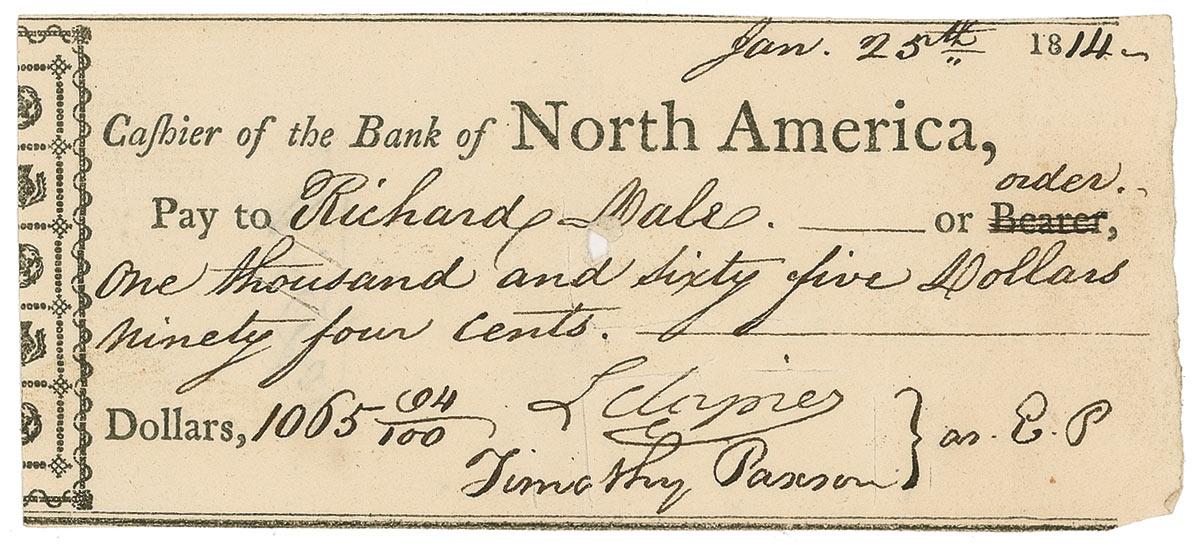 Jan. 25th 1814
Caſhier of the Bank of North America,
order.
Pay to Richard Dale. or Bearer,
One thousand and sixty five Dollars
ninety four cents.
Dollars, 1065 94/100
Timothy Paxson } as. E. P